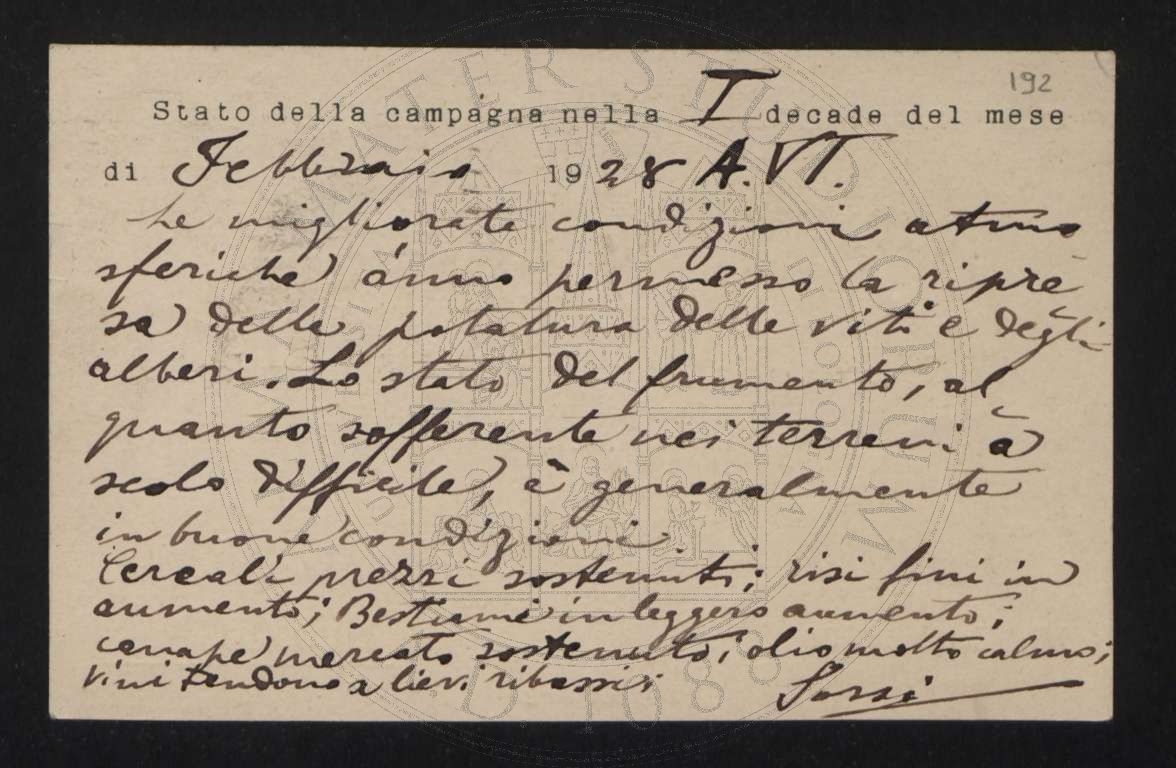 192
Stato della campagna nella I decade del mese
di Febbraio 1928 A. VI.
Le migliorate condizioni atmo
sferiche ànno permesso la ripre
sa della potatura delle viti e degli
alberi. Lo stato del frumento, al
quanto sofferente nei terreni à
scolo difficile, è generalmente
in buone condizioni
Cereali prezzi sostenuti; risi fini in
aumento; Bestiame in leggero aumento;
canape mercato sostenuto; olio molto calmo;
vini tendono a lievi ribassi;
ALMA MATER STUDIORUM
A.D. 1088